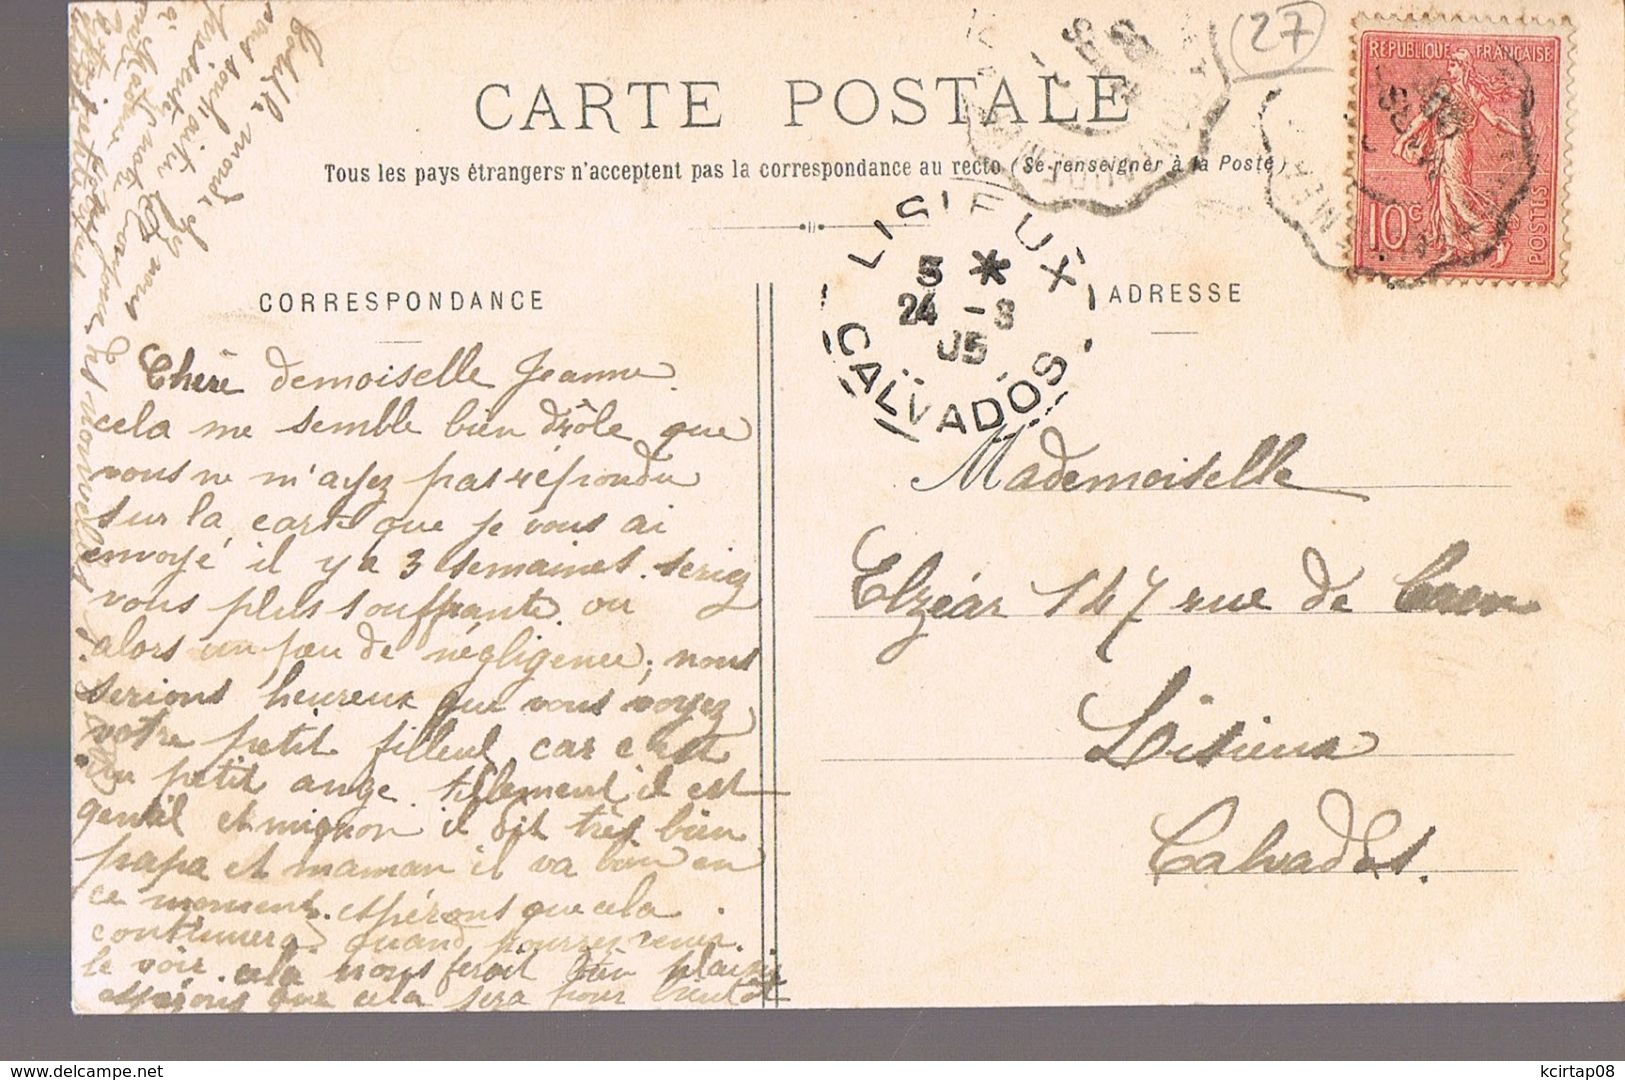 27
REPUBLIQUE FRANÇAISE
10c
POSTES
CARTE POSTALE
Tous les pays étrangers n'acceptent pas la correspondance au recto (Se renseigner à la Poste)
LISIEUX
5 *
24 - 3
05
CALVADOS
CORRESPONDANCE
Chère demoiselle Jeanne.
cela me semble bien drôle que
vous ne m'ayez pas répondu
sur la carte que je vous ai
envoyé il y a 3 semaines. seriez
vous plus souffrante ou
alors un peu de négligence, nous
serions heureux que vous voyez
votre petit filleul car c'est
un petit ange tellement il est
gentil et mignon il dit très bien
papa et maman il va bien en
ce moment. espérons que cela
continuera quand pourrez venir
le voir. cela nous ferait bien plaisir
espérons que cela sera pour bientôt
ADRESSE
Mademoiselle
Elzéar 147 rue de Caen
Lisieux
Calvados.
nous souhaiter
présenté
à
des nouvelles
kcirtap08